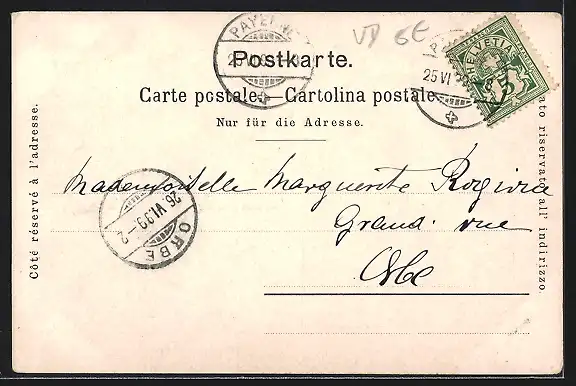 VD GE
PAYERNE
Postkarte.
Carte postale. — Cartolina postale.
Nur für die Adresse.
HELVETIA
25 VI
Côté réservé à l'adresse.
Mademoiselle Marguerite
Grand' rue
Orbe
26. VI. 99 - 2
ORBE
Lato riservato all' indirizzo.